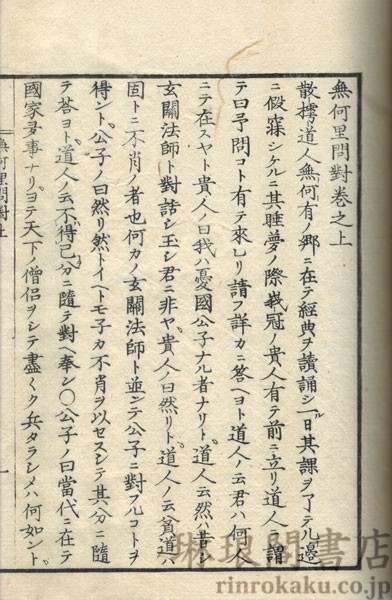 無何里問對巻之上
散樗道人無何有ノ郷ニ在テ經典ヲ讀誦シ一日其課ヲ了テル邉
ニ假寐シケルニ其睡夢ノ際峩冠ノ貴人有テ前ニ立リ道人ニ謂
テ曰予問コト有テ來レリ請フ詳カニ答ヘヨト道人ノ云君ハ何人
ニテ在スヤト貴人ノ曰我ハ憂國公子ナル者ナリト道人云然ハ昔シ
玄關法師ト對話シ玉シ君ニ非ヤ貴人ノ曰然リト道人ノ云貧道ハ
固トニ不肖ノ者也何カ玄關法師ト並シテ公子ニ對フルコトヲ
得ント公子ノ曰然リ然トイヘトモ子カ不肖ヲ以セスシテ其分ニ隨
テ答ヨト道人ノ云不得已分ニ隨テ對ヘ奉ン〇公子ノ曰當代ニ在テ
國家多事ナリヨテ天下ノ僧侶ヲシテ盡ク兵タラシメハ何如ント
無何里問對上
一
琳琅閣書店
rinrokaku.co.jp